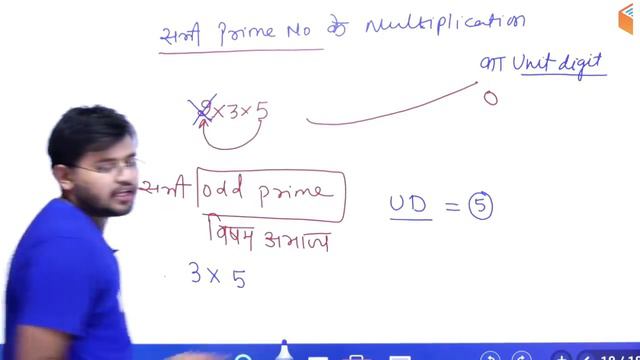 सभी Prime No के Multiplication
का Unit digit
2×3×5
0
सभी odd prime
UD = 5
विषम अभाज्य
3× 5